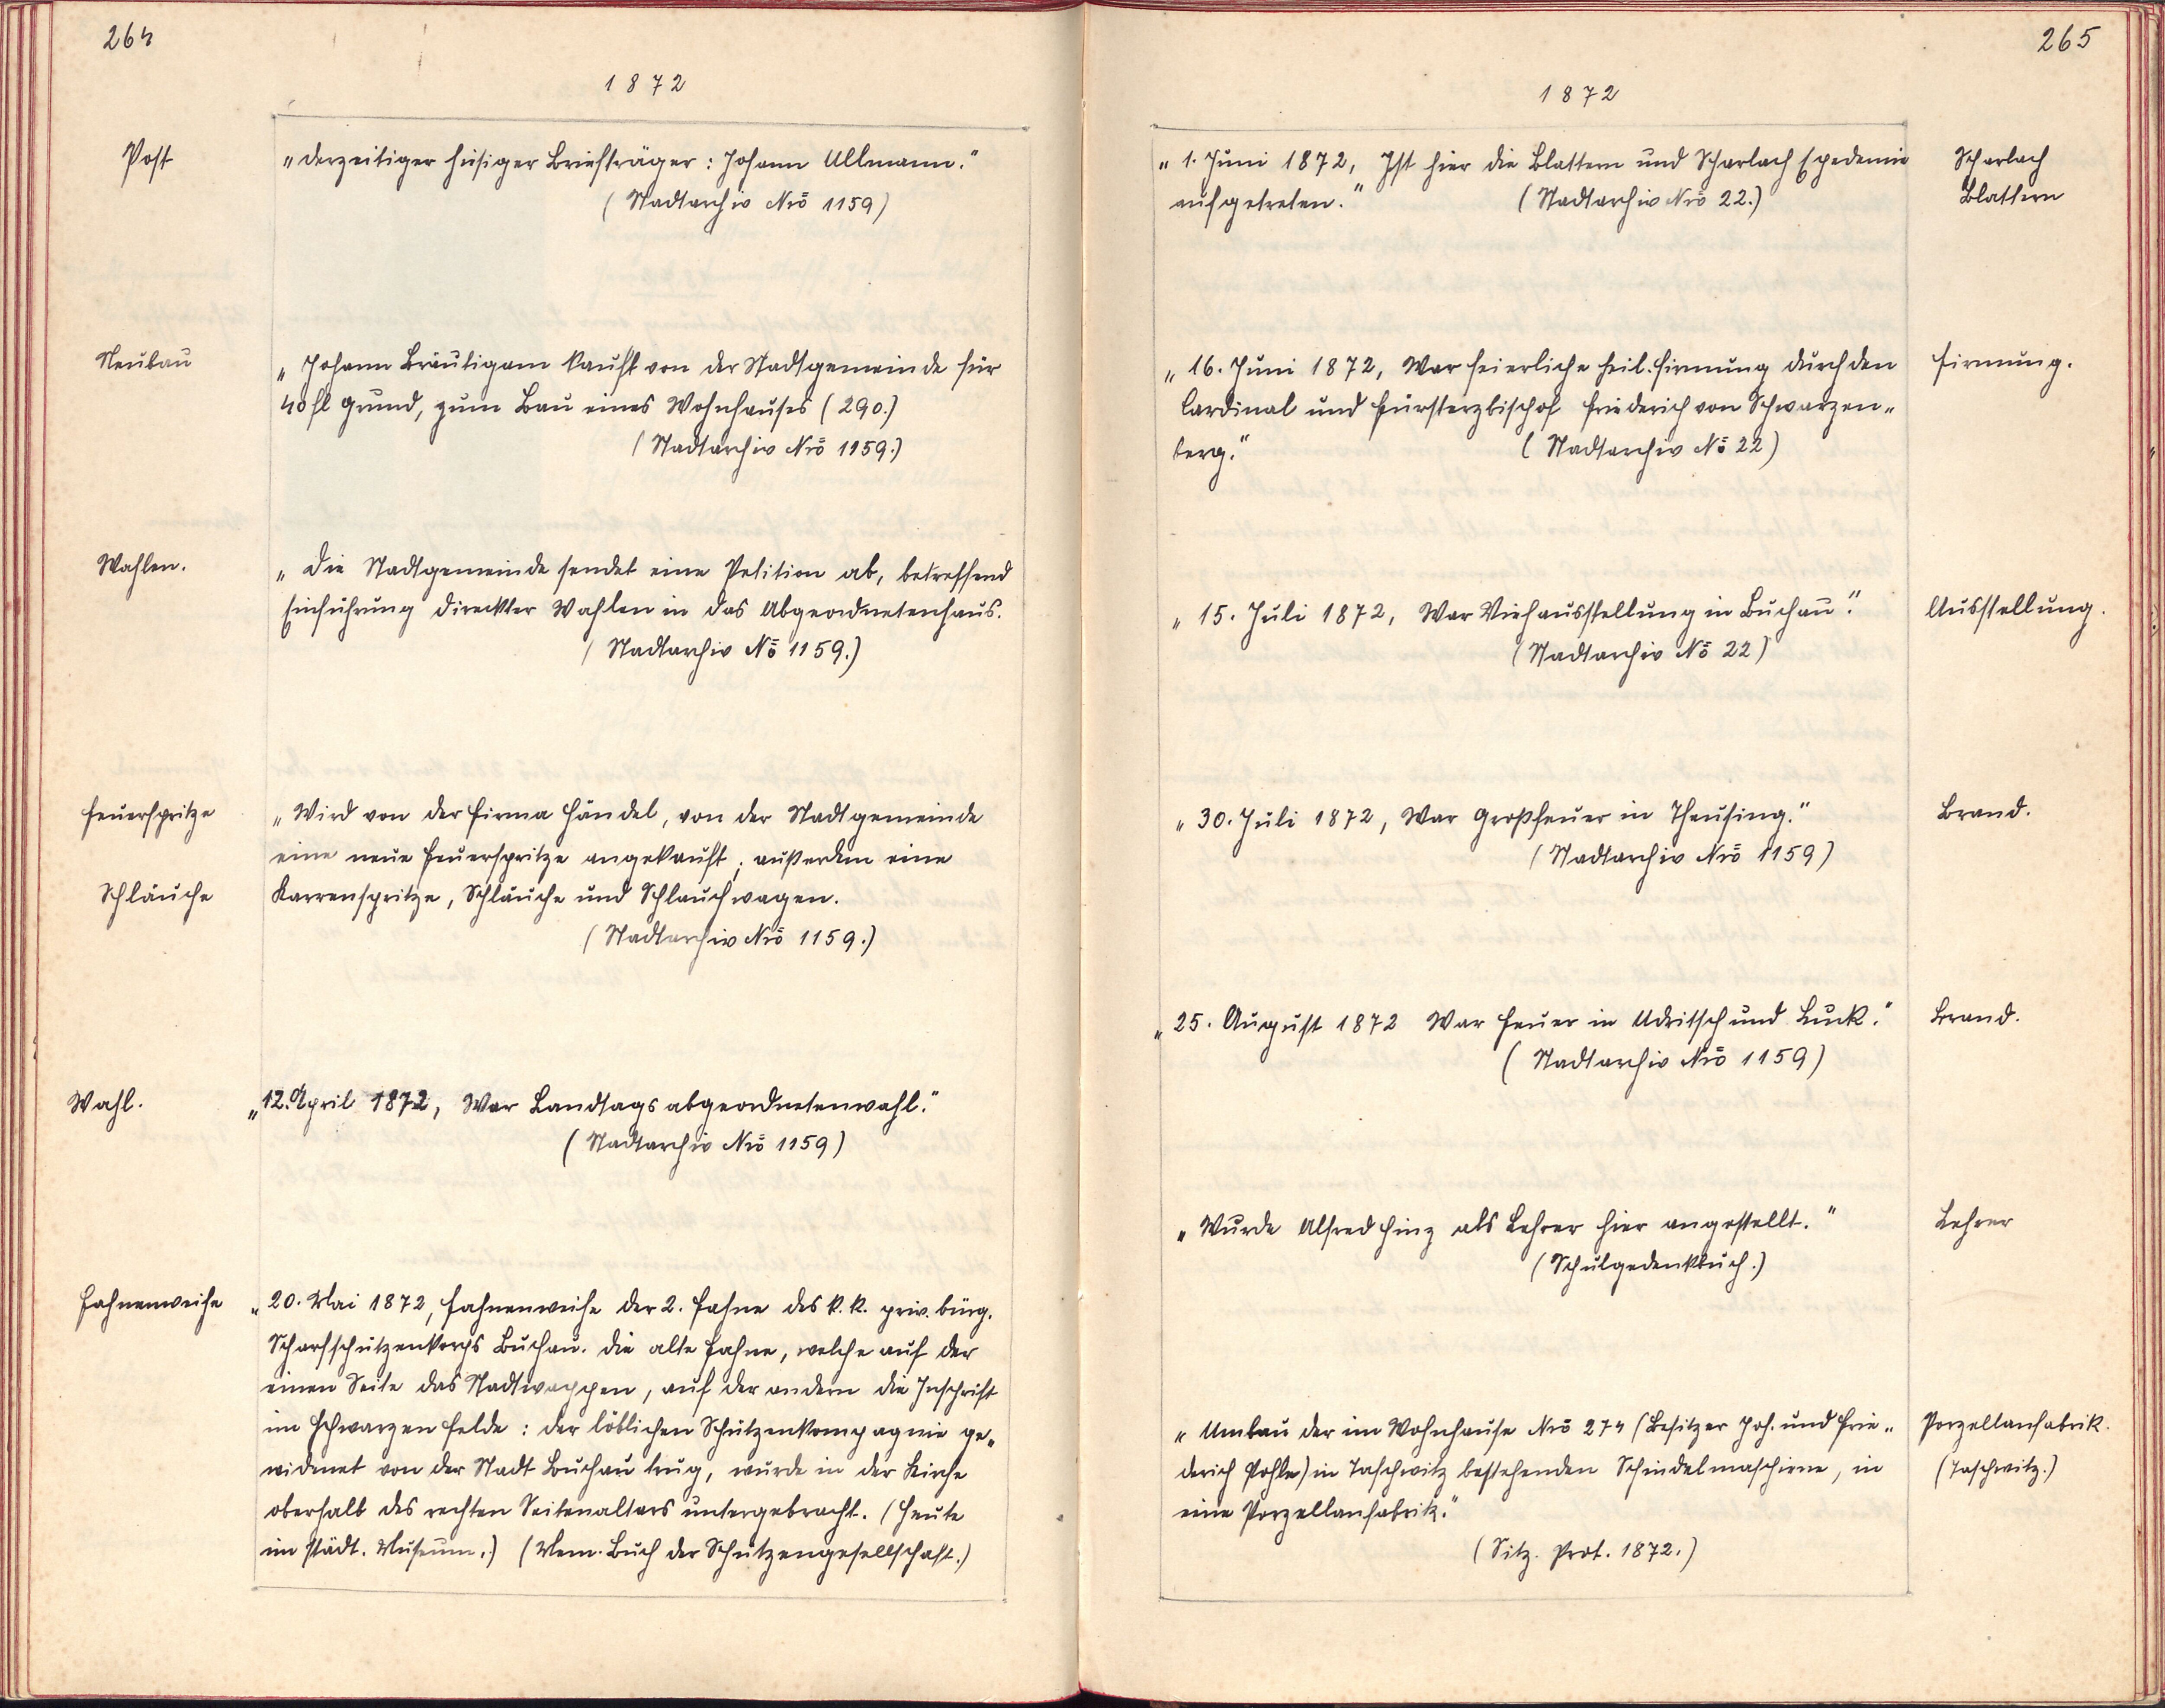 264
1872
Post
„derzeitiger hiesiger Briefträger: Johann Ullmann."
(Stadtarchiv Nro 1159)
Neubau
„Johann Bräutigam kauft von der Stadtgemeinde für
40 fl Grund, zum Bau eines Wohnhauses (290.)
(Stadtarchiv Nro 1159.)
Wahlen.
„Die Stadtgemeinde sendet eine Petition ab, betreffend
Einführung direckter Wahlen in das Abgeordnetenhaus.
(Stadtarchiv No 1159.)
Feuerspritze
„Wird von der Firma Händel, von der Stadtgemeinde
eine neue Feuerspritze angekauft, außerdem eine
Schläuche
Karrenspritze, Schläuche und Schlauchwagen.
(Stadtarchiv Nro 1159.)
Wahl.
„12. April 1872, War Landtagsabgeordnetenwahl."
(Stadtarchiv Nro 1159)
Fahnenweihe
„20. Mai 1872, Fahnenweihe der 2. Fahne des k. k. priv. bürg.
Scharfschützenkorps Buchau. Die alte Fahne, welche auf der
einen Seite das Stadtwappen, auf der andern die Inschrift
im schwarzen Felde: Der löblichen Schützenkompagnie ge„
widmet von der Stadt Buchau trug, wurde in der Kirche
oberhalb des rechten Seitenaltars untergebracht. (Heute
im städt. Museum.) (Mem. Buch der Schützengesellschaft.)
265
1872
„1. Juni 1872, Ist hier die Blattern und Scharlach Epedemie
aufgetreten." (Stadtarchiv Nro 22.)
Scharlach
Blattern
„16. Juni 1872, War feierliche heil. Firmung durch den
Cardinal und Fürsterzbischof Friederich von Schwarzen„
berg." (Stadtarchiv No 22)
Firmung.
„15. Juli 1872, War Viehausstellung in Buchau."
(Stadtarchiv No 22)
Ausstellung.
„30. Juli 1872, War Großfeuer in Theusing."
(Stadtarchiv Nro 1159)
Brand.
„25. August 1872 War Feuer in Udritsch und Luck."
(Stadtarchiv Nro 1159)
Brand.
„Wurde Alfred Hinz als Lehrer hier angestellt."
(Schulgedenkbuch.)
Lehrer
„Umbau der im Wohnhause Nro 274 (Besitzer Joh. und Frie„
derich Pohle) in Taschwitz bestehenden Schindelmaschiene, in
eine Porzellanfabrik."
(Sitz. Prot. 1872.)
Porzellanfabrik.
(Taschwitz.)